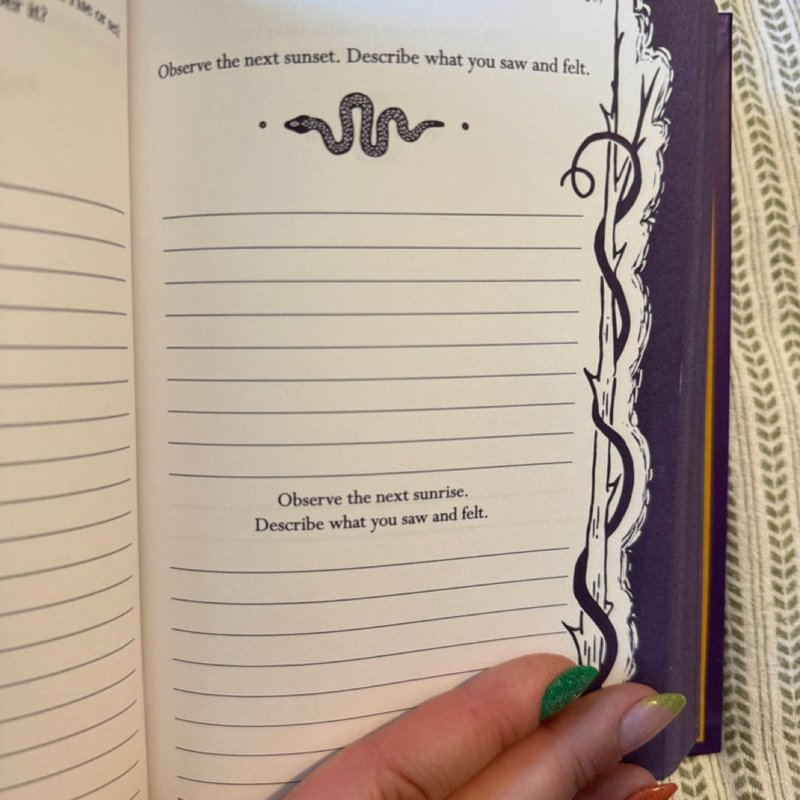 it?
Observe the next sunset. Describe what you saw and felt.
Observe the next sunrise.
Describe what you saw and felt.